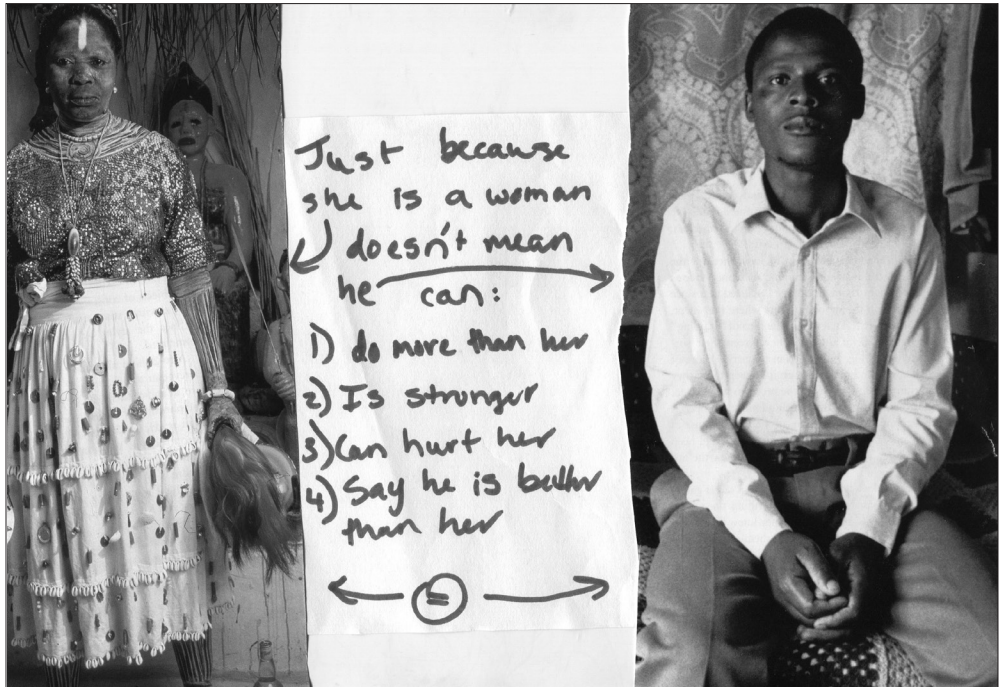 Just because
she is a woman
doesn't mean
he can:
1) do more than her
2) Is stronger
3) Can hurt her
4) Say he is better
than her
=